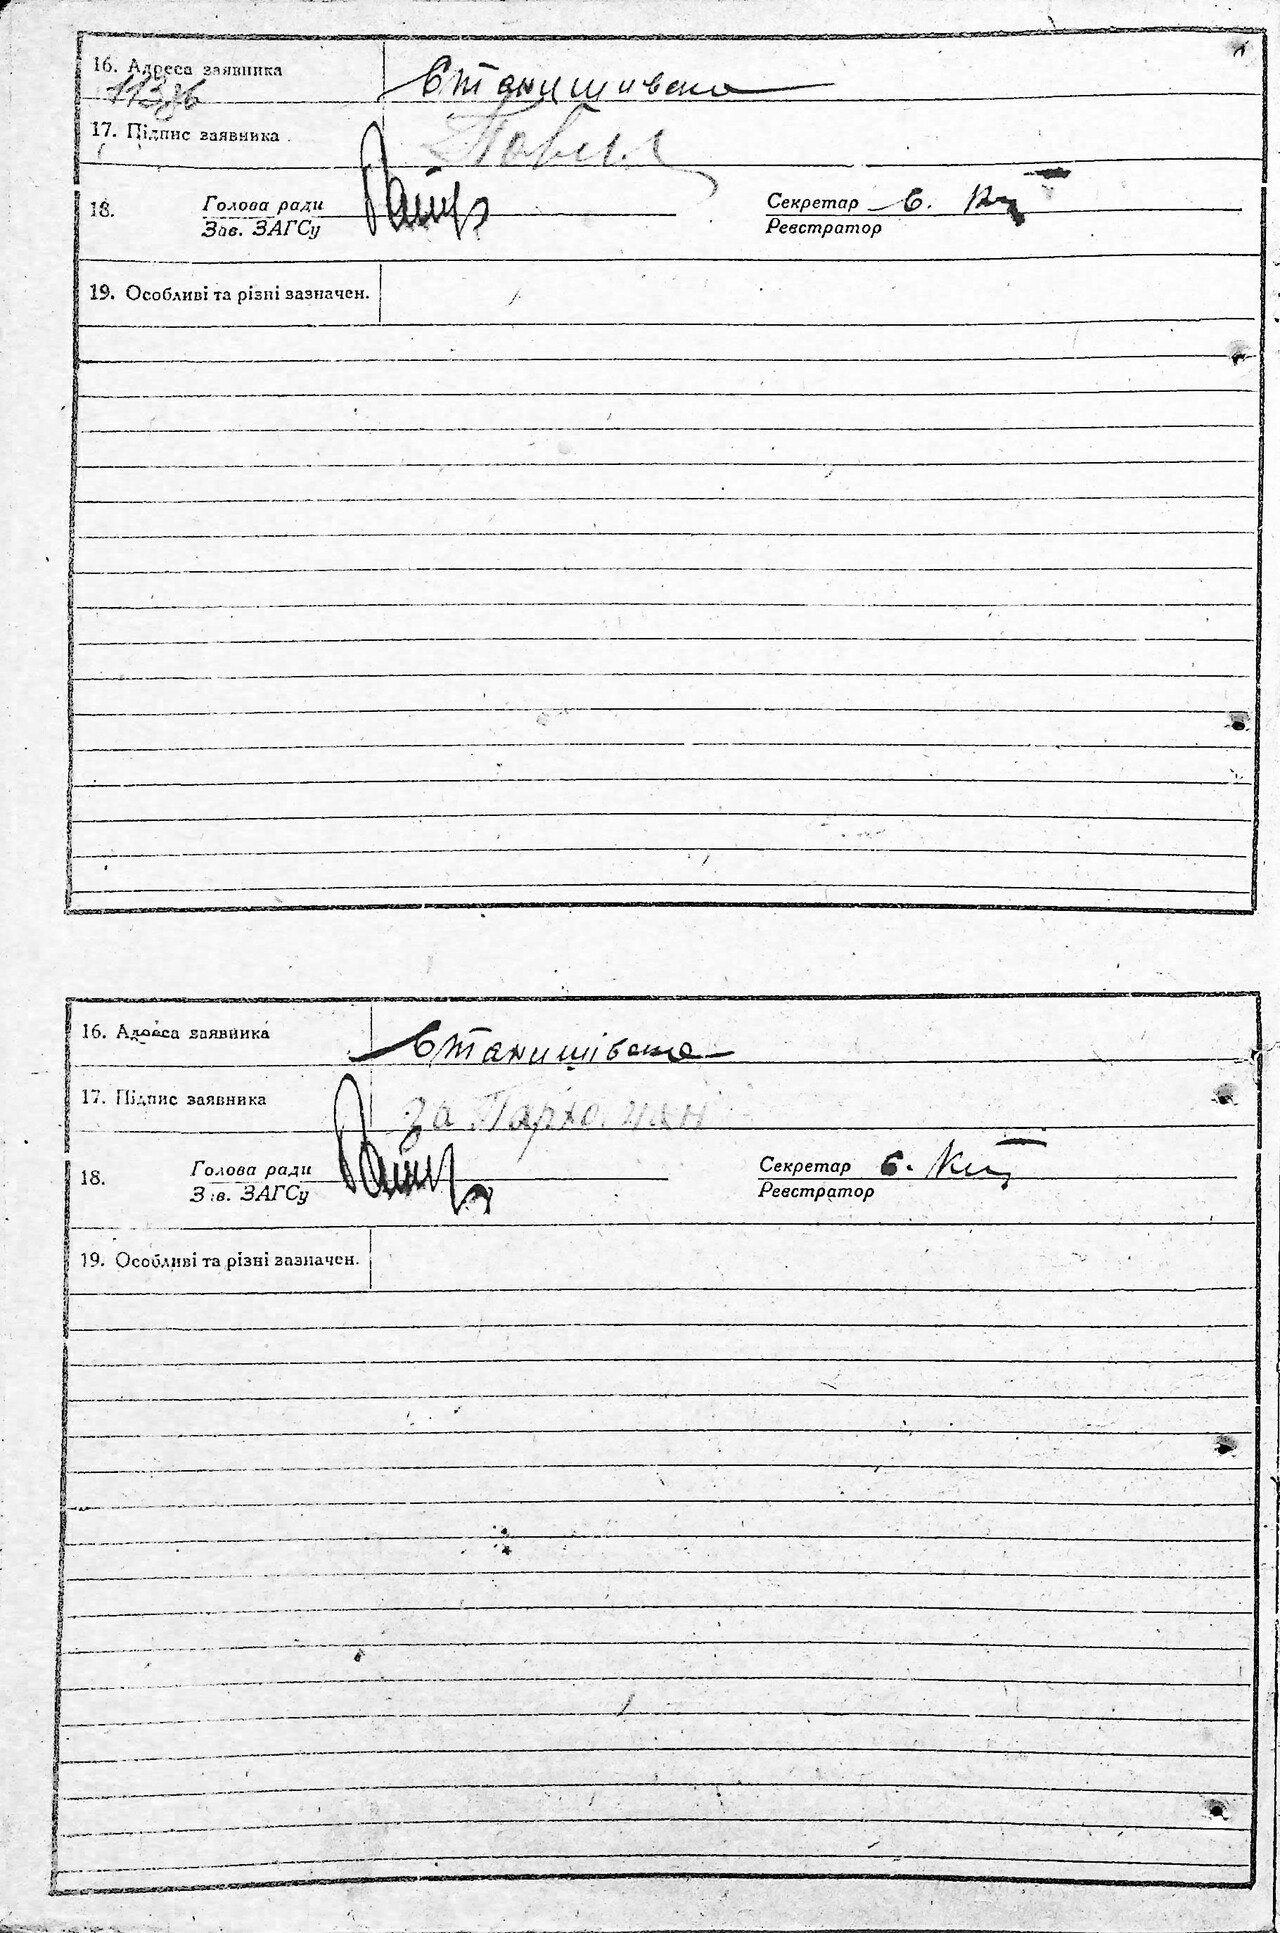 16. Адреса заявника Станишивска
17. Підпис заявника
18. Голова ради Секретар
Зав. ЗАГСу Реєстратор
19. Особливі та різні зазначен.
16. Адреса заявника Станишівска
17. Підпис заявника за Пархоман
18. Голова ради Секретар
Зав. ЗАГСу Реєстратор
19. Особливі та різні зазначен.